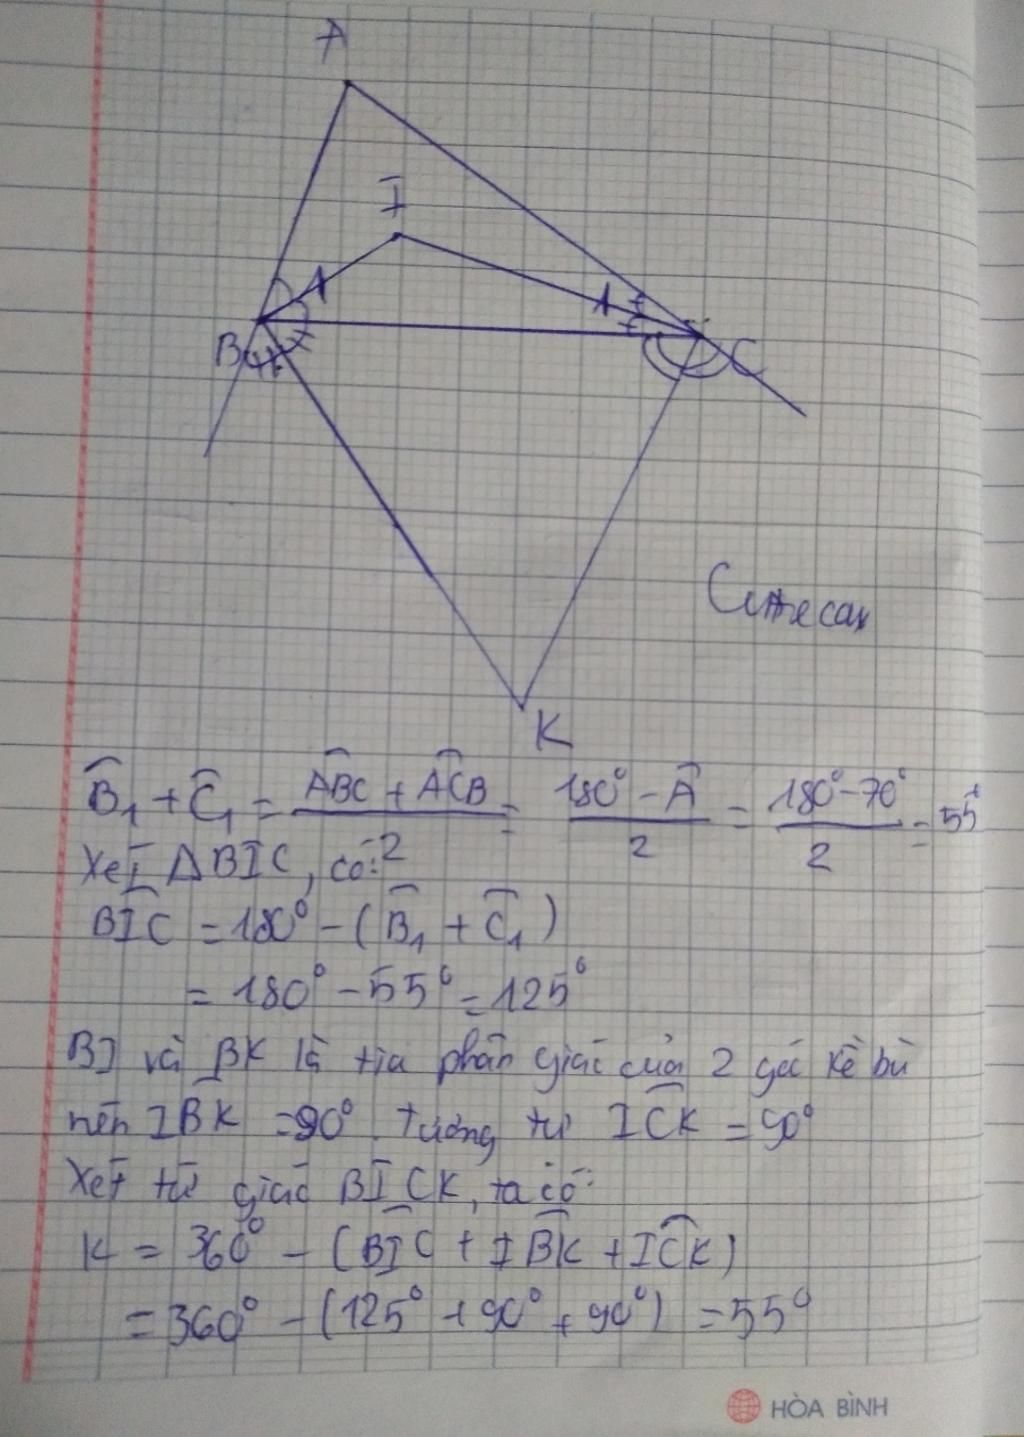 A
I
1
1
B
C
K
B̂₁ + Ĉ₁ = (ABC + ACB)/2 = (180° - Â)/2 = (180° - 70°)/2 = 55°
Xét ΔBIC, có:
BIC = 180° - (B̂₁ + Ĉ₁)
= 180° - 55° = 125°
BI và BK là tia phân giác của 2 góc kề bù
nên IBK = 90°. Tương tự ICK = 90°
Xét tứ giác BICK, ta có:
K = 360° - (BIC + IBK + ICK)
= 360° - (125° + 90° + 90°) = 55°
HÒA BÌNH